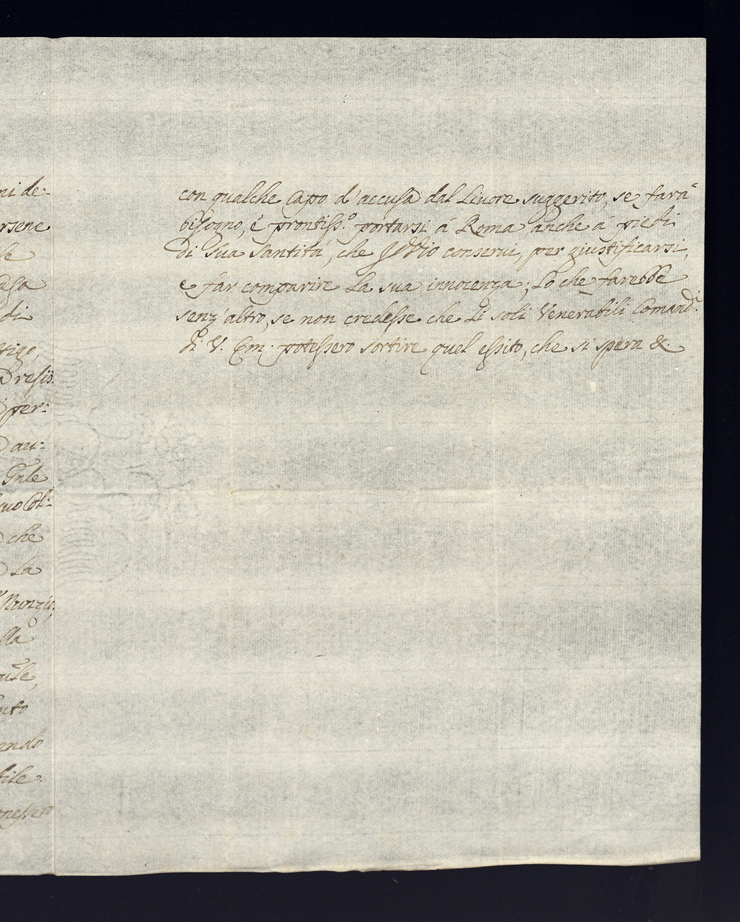 ni de:
rsene
di
Presis:
per:
au:
Gnle
che
La
lla
nto
endo
file:
con qualche Capo d'accusa dal Livore suggerito, se farà
bisogno, è prontiss.o portarsi à Roma anche à piedi
di Sua Santità, che Iddio conservi, per giustificarsi,
e far comparire La sua innocenza; Lo che farebbe
senz'altro, se non credesse che Li soli Venerabili Comandi
di V. Em. potessero sortire quel esito, che si spera &